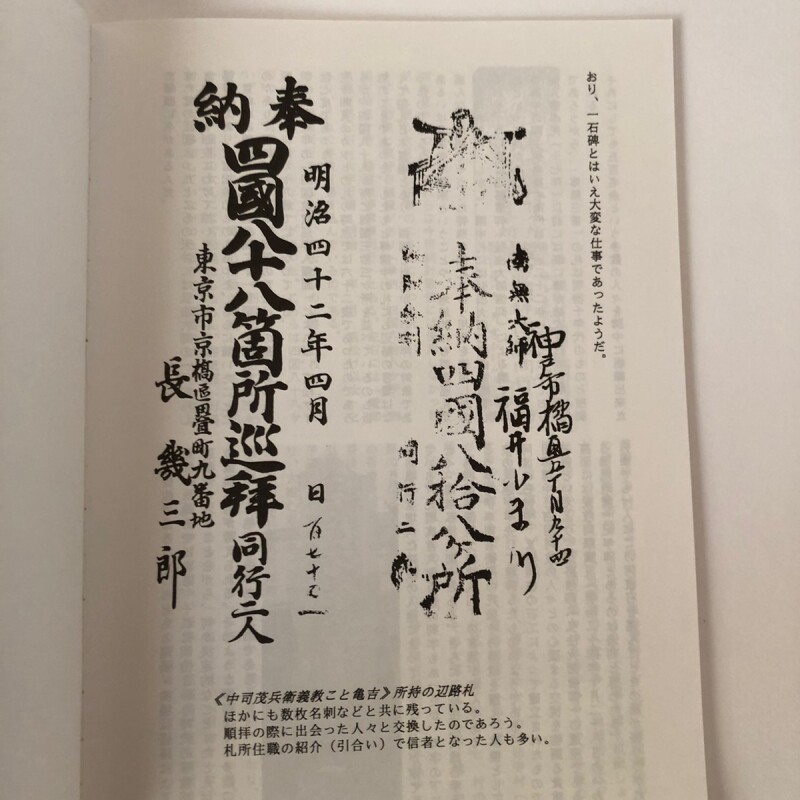 おり、一石碑とはいえ大変な仕事であったようだ。
神戸市橘通五丁目
福井
南無大師
奉納四國八拾八ヶ所
同行二
奉納
明治四十二年四月 日
四國八十八箇所巡拜同行二人
東京市京橋區畳町九番地
長幾三郎
《中司茂兵衛義教こと亀吉》所持の辺路札
ほかにも数枚名刺などと共に残っている。
順拝の際に出会った人々と交換したのであろう。
札所住職の紹介（引合い）で信者となった人も多い。